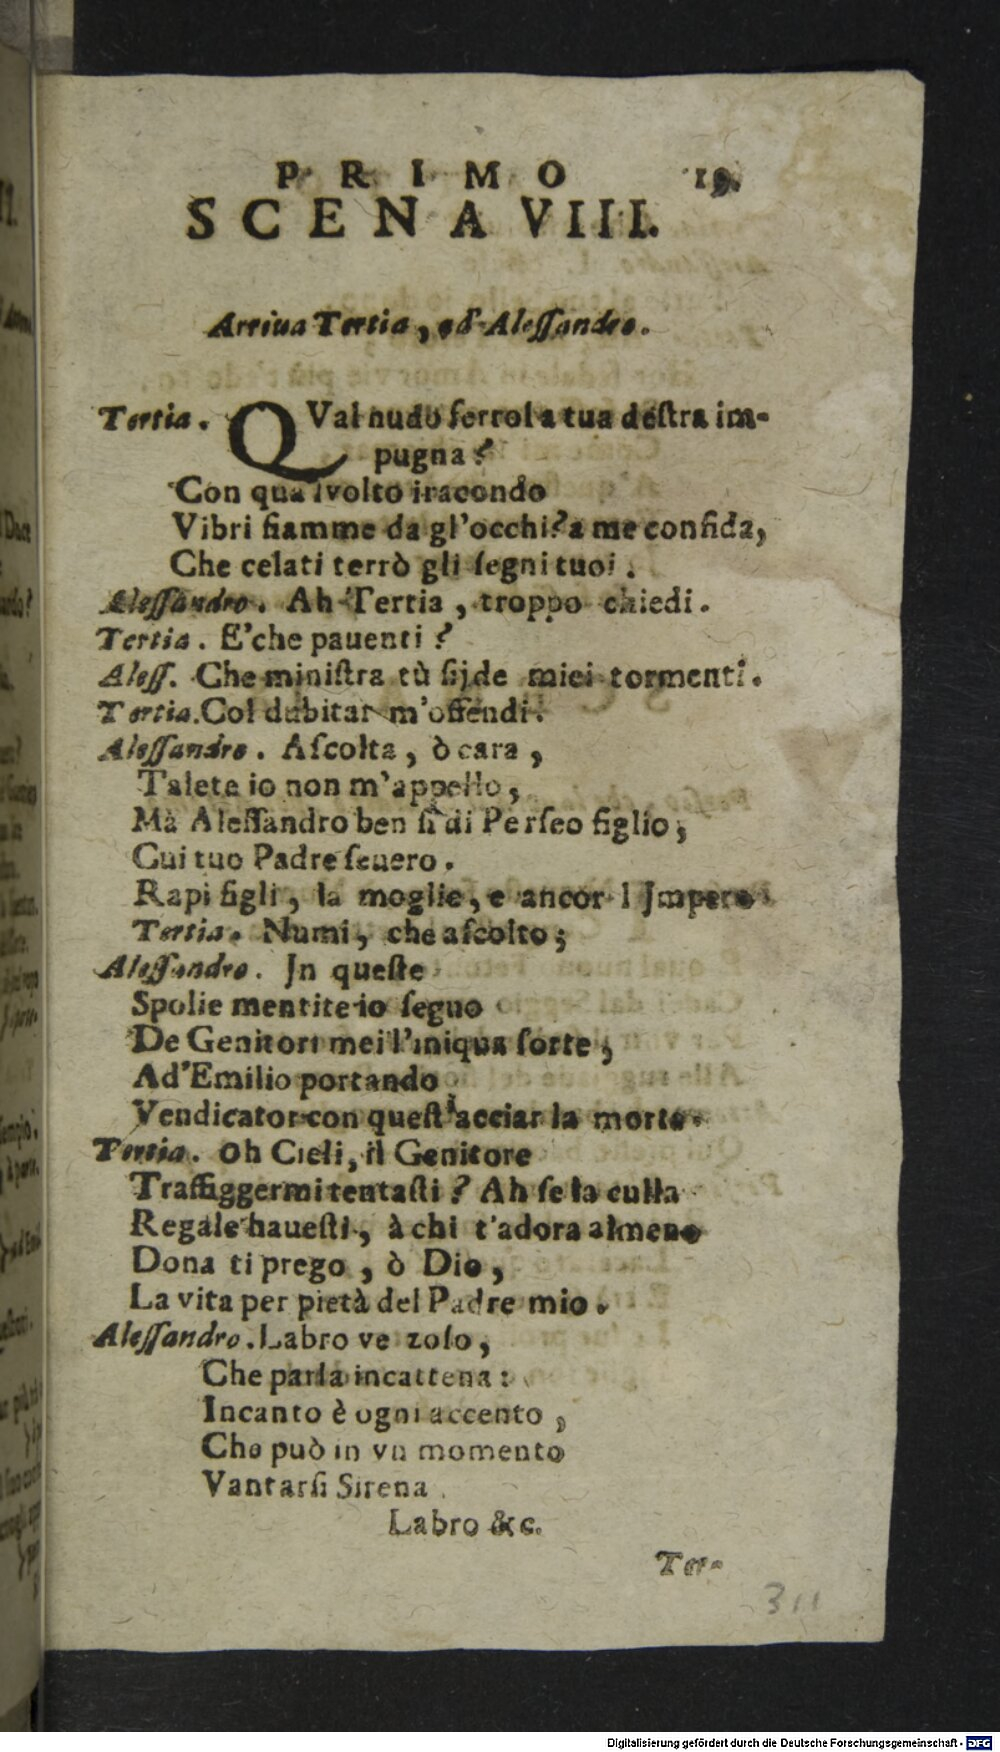 PRIMO 19.
SCENA VIII.
Arriua Tertia, ed' Alessandro.
Tertia. QVal nudo ferro la tua destra im-
pugna?
Con qua l volto iracondo
Vibri fiamme da gl'occhi? a me confida,
Che celati terrò gli segni tuoi.
Alessandro. Ah Tertia, troppo chiedi.
Tertia. E' che pauenti?
Aless. Che ministra tù sij de miei tormenti.
Tertia. Col dubitar m'offendi.
Alessandro. Ascolta, ò cara,
Talete io non m'appello,
Mà Alessandro ben sì di Perseo figlio,
Cui tuo Padre seuero.
Rapi figli, la moglie, e ancor l Jmpero
Tertia. Numi, che ascolto;
Alessandro. Jn queste
Spolie mentite io seguo
De Genitori mei l'iniqua sorte,
Ad' Emilio portando
Vendicator con quest'acciar la morte.
Tertia. Oh Cieli, il Genitore
Traffiggermi tentasti? Ah se la culla
Regale hauesti, à chi t'adora almeno
Dona ti prego, ò Dio,
La vita per pietà del Padre mio.
Alessandro. Labro ve zoso,
Che parla incattena:
Incanto è ogni accento,
Che può in vn momento
Vantarsi Sirena.
Labro &c.
Ter-
311
Digitalisierung gefördert durch die Deutsche Forschungsgemeinschaft - DFG